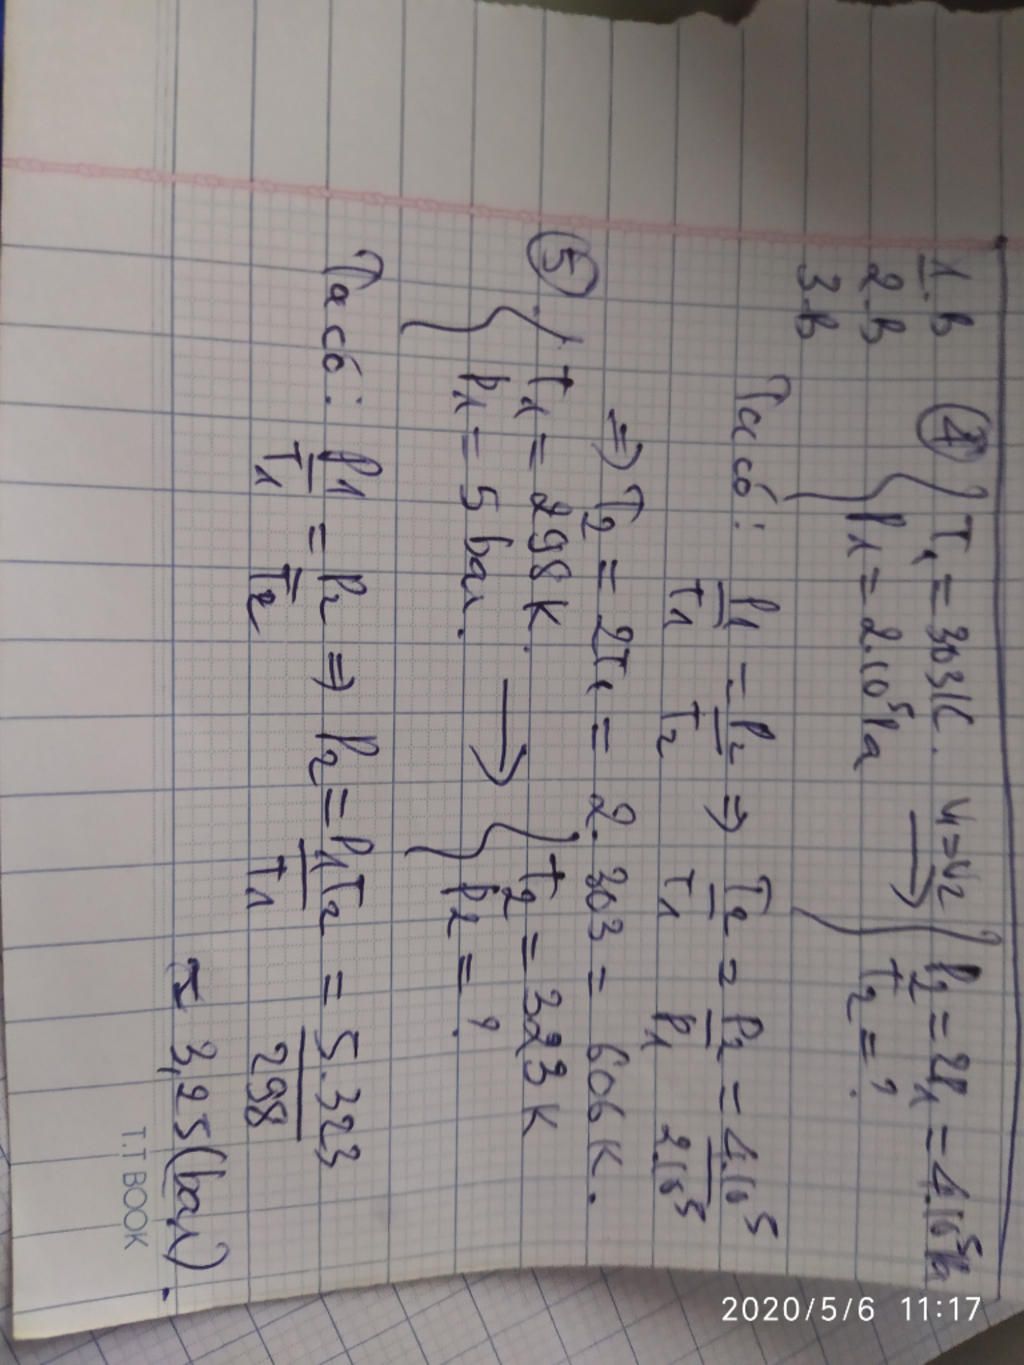 1.B
2.B
3.B
④ { T₁ = 303K. V₁=V₂ → { P₂ = 2P₁ = 4.10⁵Pa
P₁ = 2.10⁵Pa T₂ = ?
Ta có: P₁/T₁ = P₂/T₂ ⇒ T₂/T₁ = P₂/P₁ = 4.10⁵/2.10⁵
⇒ T₂ = 2T₁ = 2.303 = 606K.
⑤ { T₁ = 298K. → { T₂ = 323K
P₁ = 5 bar. P₂ = ?
Ta có: P₁/T₁ = P₂/T₂ ⇒ P₂ = P₁T₂/T₁ = 5.323/298
≈ 3,25(bar).
T.T BOOK
2020/5/6 11:17